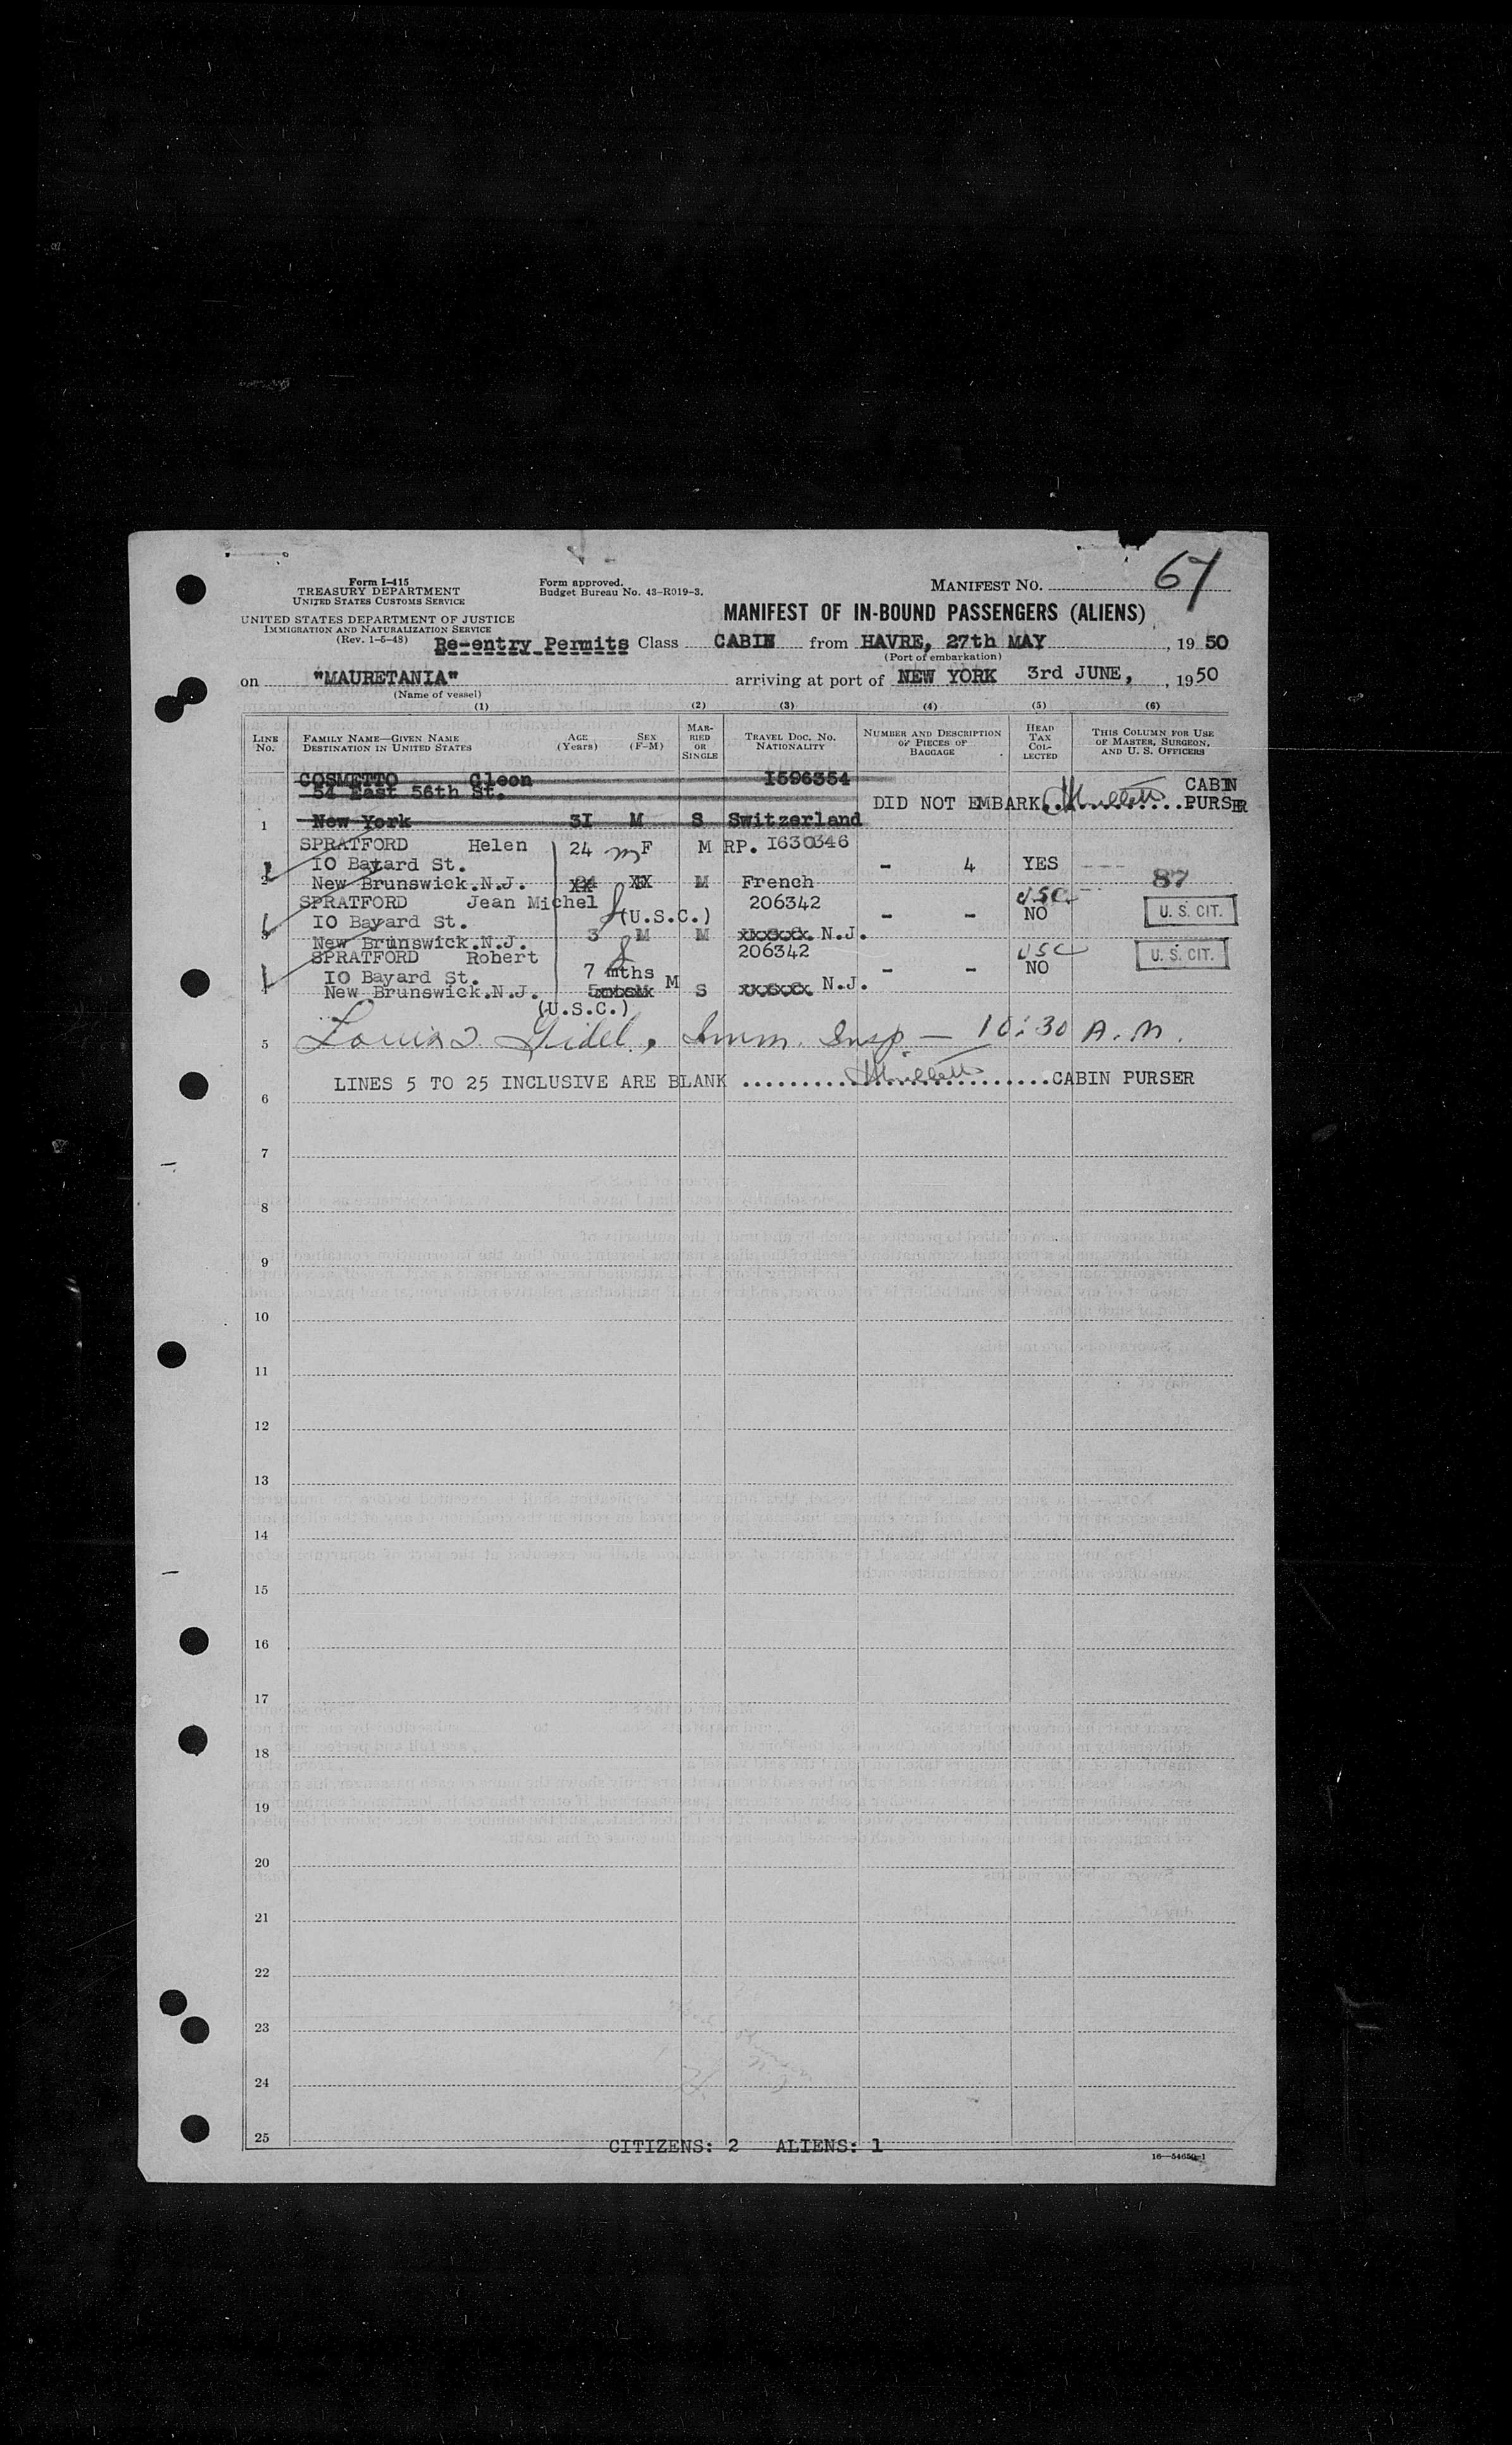 67
Form I-415
TREASURY DEPARTMENT
UNITED STATES CUSTOMS SERVICE
UNITED STATES DEPARTMENT OF JUSTICE
IMMIGRATION AND NATURALIZATION SERVICE
(Rev. 1-5-48)
Form approved.
Budget Bureau No. 43-R019-3.
MANIFEST NO.
MANIFEST OF IN-BOUND PASSENGERS (ALIENS)
Re-entry Permits Class CABIN from HAVRE, 27th MAY, 1950
(Port of embarkation)
on "MAURETANIA" arriving at port of NEW YORK 3rd JUNE, , 1950
(Name of vessel)
(1) (2) (3) (4) (5) (6)
LINE No. FAMILY NAME—GIVEN NAME DESTINATION IN UNITED STATES AGE (Years) SEX (F-M) MARRIED OR SINGLE TRAVEL DOC. NO. NATIONALITY NUMBER AND DESCRIPTION OF PIECES OF BAGGAGE HEAD TAX COLLECTED THIS COLUMN FOR USE OF MASTER, SURGEON, AND U. S. OFFICERS
COSMETTO Cleon I596354
54 East 56th St. DID NOT EMBARK CABIN PURSER
1 New York 3I M S Switzerland
SPRATFORD Helen 24 F M RP. I630346
IO Bayard St. - 4 YES
2 New Brunswick.N.J. XX XX M French 87
SPRATFORD Jean Michel 206342 USC
IO Bayard St. (U.S.C.) - - NO U. S. CIT.
3 New Brunswick.N.J. 3 M M xxxxxx N.J.
SPRATFORD Robert 206342 USC
IO Bayard St. 7 mths M - - NO U. S. CIT.
4 New Brunswick.N.J. S xxxxxx N.J.
(U.S.C.)
5 Louis Imm. Insp. — 10:30 A.M.
LINES 5 TO 25 INCLUSIVE ARE BLANK ............................CABIN PURSER
6
7
8
9
10
11
12
13
14
15
16
17
18
19
20
21
22
23
24
25
CITIZENS: 2 ALIENS: 1
16—54650-1